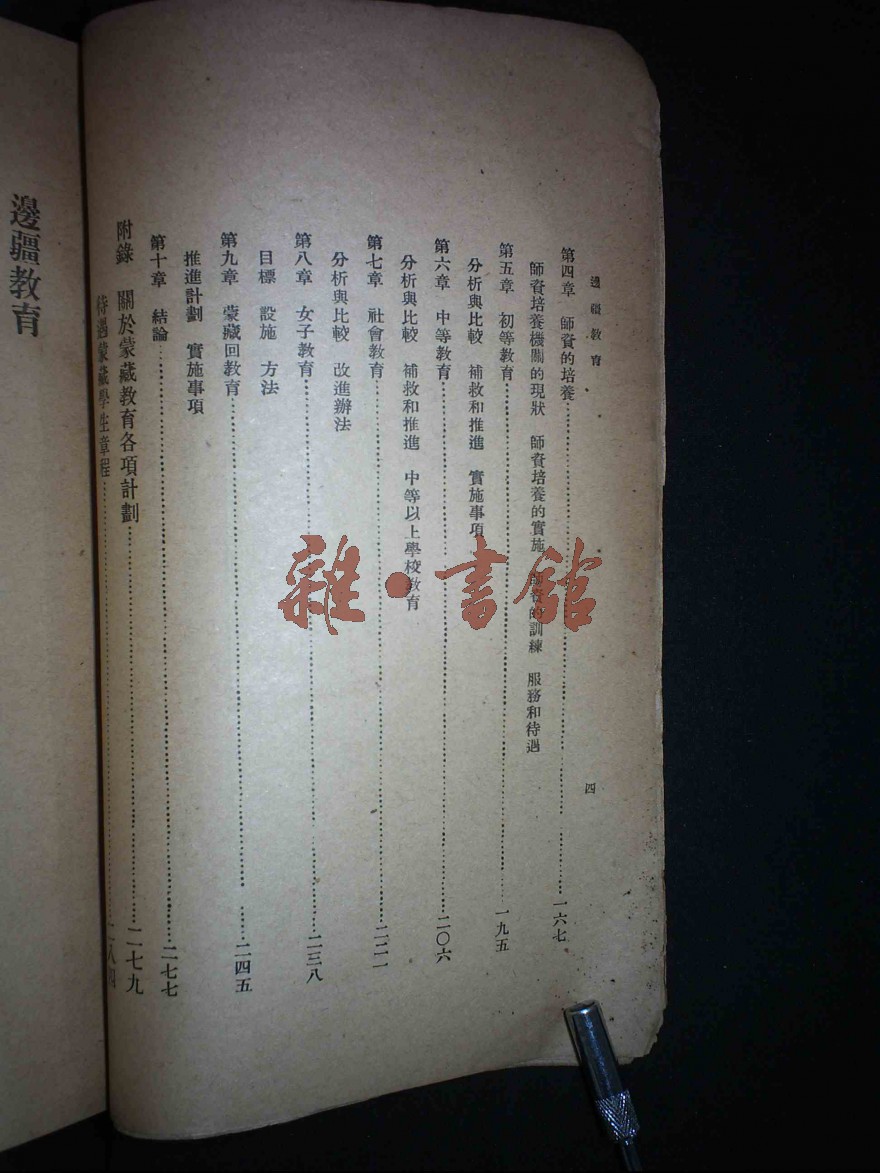 邊疆教育
四
第四章 師資的培養……一六七
師資培養機關的現狀 師資培養的實施 師資的訓練 服務和待遇
第五章 初等教育……一九五
分析與比較 補救和推進 實施事項
第六章 中等教育……二〇六
分析與比較 補救和推進 中等以上學校教育
第七章 社會教育……二二一
分析與比較 改進辦法
第八章 女子教育……二三八
目標 設施 方法
第九章 蒙藏回教育……二四五
推進計劃 實施事項
第十章 結論……二七七
附錄 關於蒙藏教育各項計劃……二七九
待遇蒙藏學生章程……二八四
邊疆教育
雜·書館